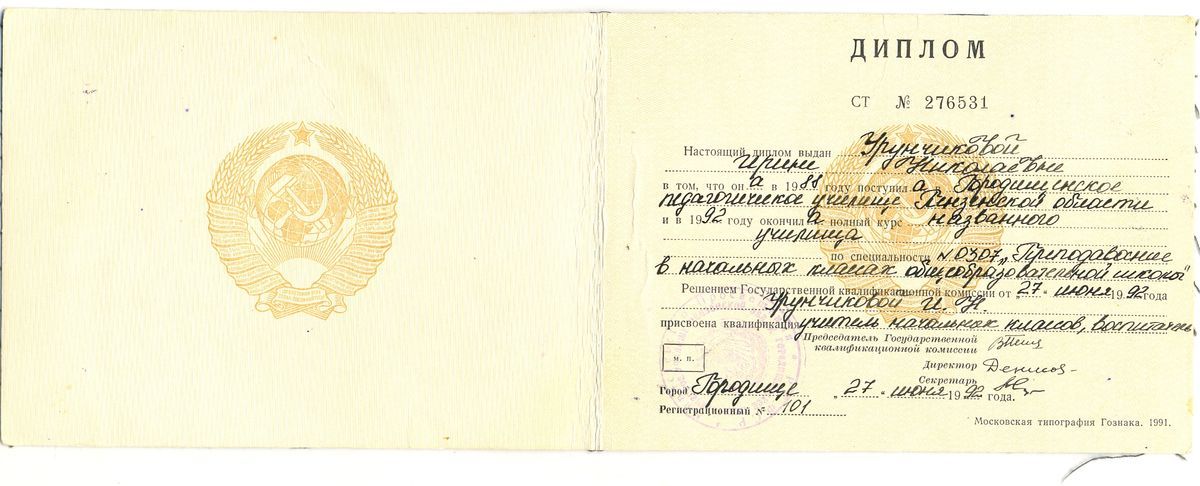 ДИПЛОМ
СТ № 276531
Настоящий диплом выдан Урунчиковой
Ирине Николаевне
в том, что он а в 1988 году поступил а Городищенское
педагогическое училище Пензенской области
и в 1992 году окончил а полный курс названного
училища
по специальности № 0307 „Преподавание
в начальных классах общеобразовательной школы"
Решением Государственной квалификационной комиссии от „27" июня 1992 года
Урунчиковой И. Н.
присвоена квалификация учитель начальных классов, воспитатель
Председатель Государственной
квалификационной комиссии
Директор
Секретарь
м. п.
Город Городище „27" июня 1992 года.
Регистрационный № 101
Московская типография Гознака. 1991.